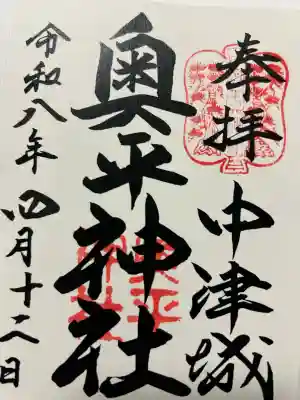 奉拝
中津城
奥平神社
令和八年四月十二日